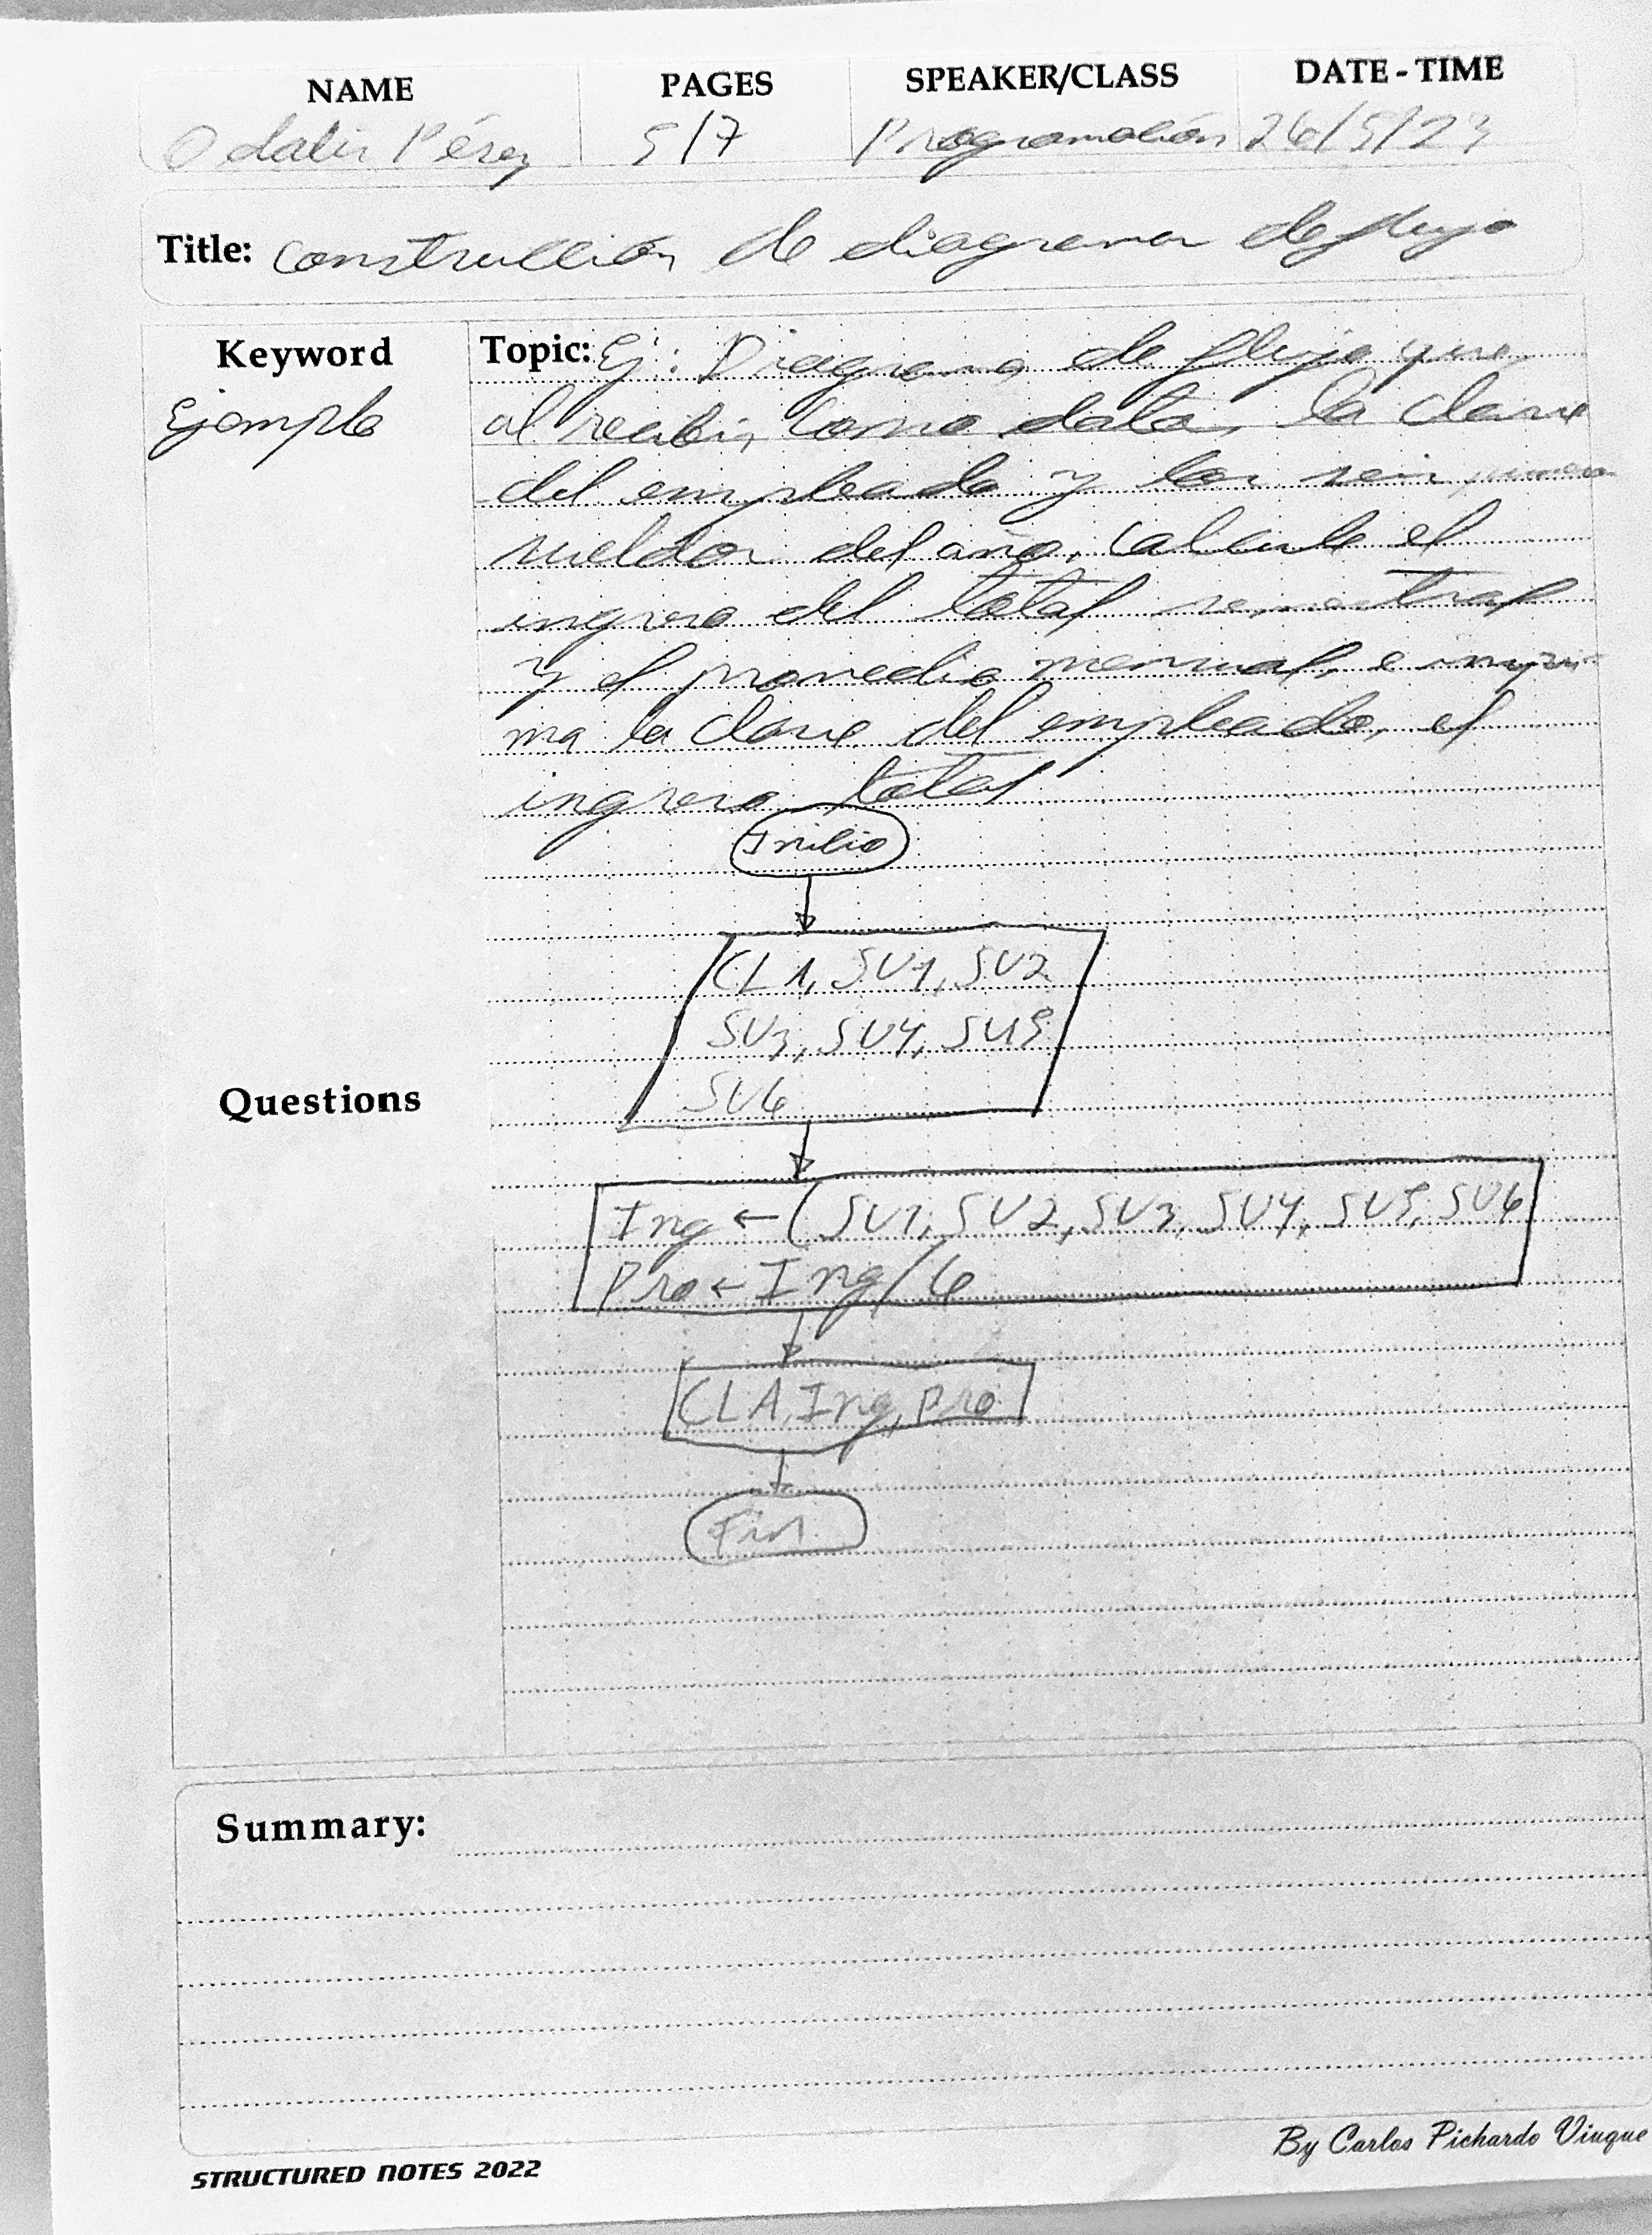 NAME PAGES SPEAKER/CLASS DATE - TIME
Odalis Pérez 5/7 Programación 26/5/23
Title: Construcción de diagrama de flujo
Keyword
Ejemplo
Topic: Ej: Diagrama de flujo que
al recibir como datos, la clave
del empleado y los seis primeros
sueldos del año, calcule el
ingreso del total semestral
y el promedio mensual, e impri-
ma la clave del empleado, el
ingreso total
Inicio
CLA, SU1, SU2
SU3, SU4, SU5
SU6
Questions
Ing ← (SU1, SU2, SU3, SU4, SU5, SU6
Pro ← Ing/6
CLA, Ing, Pro
Fin
Summary:
By Carlos Pichardo Viuque
STRUCTURED NOTES 2022